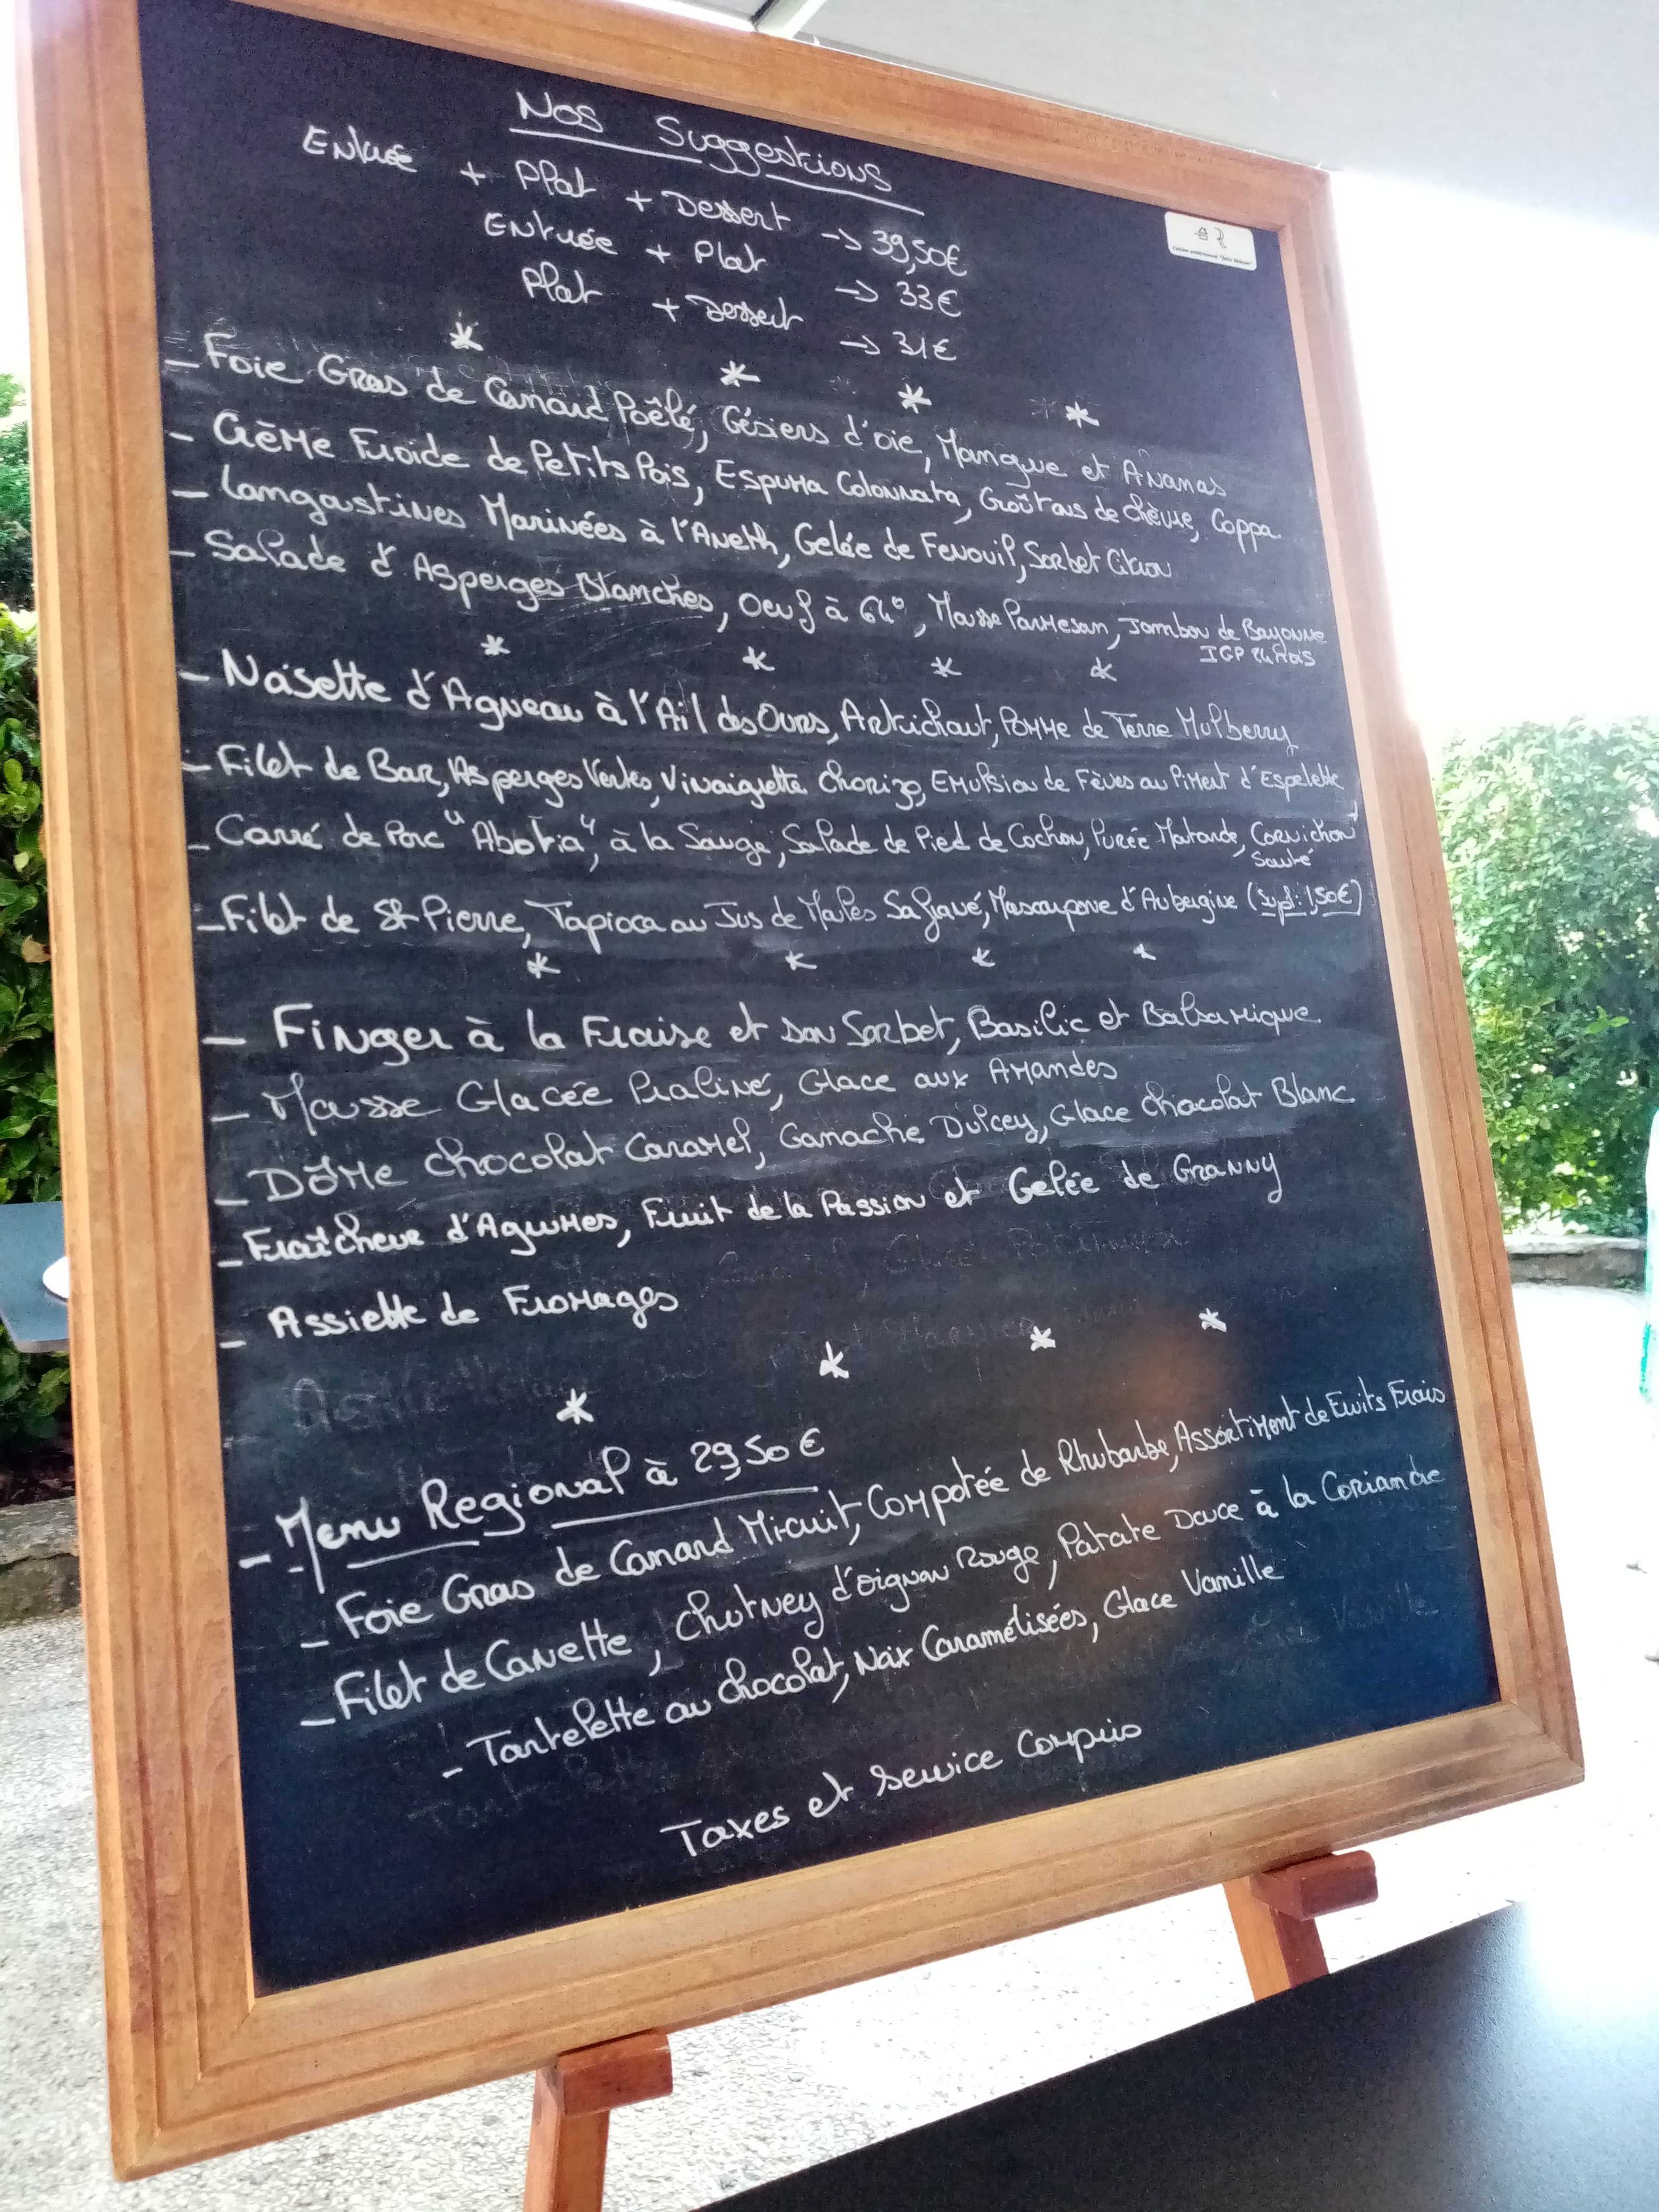 Nos Suggestions
Entrée + Plat + Dessert -> 39,50€
Entrée + Plat -> 33€
Plat + Dessert -> 31€
* * * *
- Foie Gras de Canard Poêlé, Gésiers d'oie, Mangue et Ananas
- Crème Froide de Petits Pois, Espuma Colonnata, Croûtons de chèvre, Coppa
- Langoustines Marinées à l'Aneth, Gelée de Fenouil, Sorbet Citron
- Salade d'Asperges Blanches, Oeuf à 64°, Mousse Parmesan, Jambon de Bayonne
IGP 24 Mois
* * * *
- Noisette d'Agneau à l'Ail des Ours, Artichaut, Pomme de Terre Mulberry
- Filet de Bar, Asperges Vertes, Vinaigrette Chorizo, Emulsion de Fèves au Piment d'Espelette
- Carré de Porc "Abotia", à la Sauge, Salade de Pied de Cochon, Purée Moutarde, Cornichon
Sauté
- Filet de St Pierre, Tapioca au Jus de Moules Safrané, Mascarpone d'Aubergine (Supl: 1,50€)
* * * *
- Finger à la Fraise et son Sorbet, Basilic et Balsamique
- Mousse Glacée Praliné, Glace aux Amandes
- Dôme chocolat Caramel, Ganache Dulcey, Glace chocolat Blanc
- Fraîcheur d'Agrumes, Fruit de la Passion et Gelée de Granny
- Assiette de Fromages
* * * *
- Menu Regional à 29,50€
- Foie Gras de Canard Mi-cuit, Compotée de Rhubarbe, Assortiment de Fruits Frais
- Filet de Canette, chutney d'oignon Rouge, Patate Douce à la Coriandre
- Tartelette au chocolat, Noix Caramélisées, Glace Vanille
Taxes et service Compris